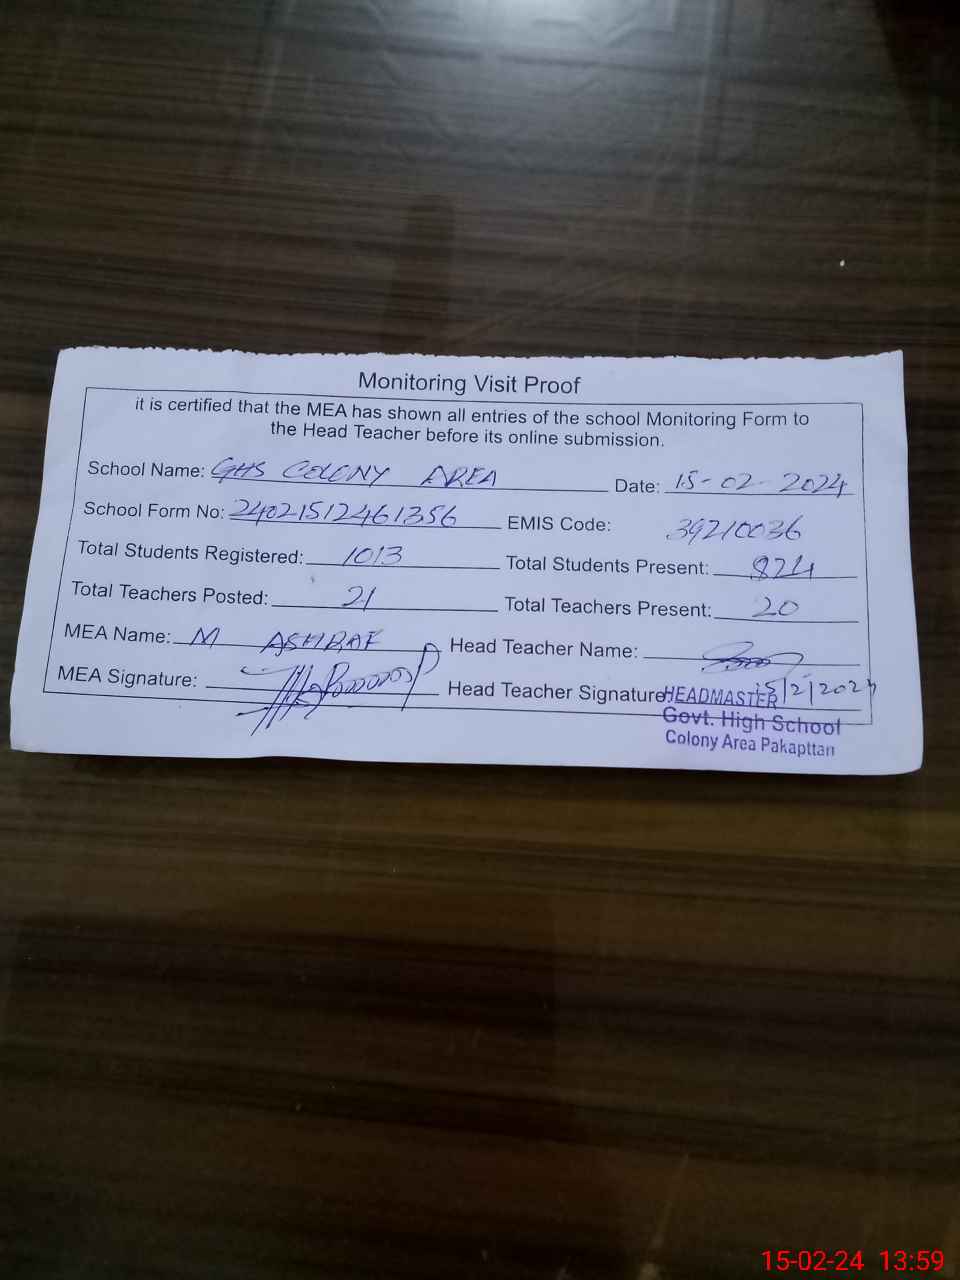 Monitoring Visit Proof
it is certified that the MEA has shown all entries of the school Monitoring Form to
the Head Teacher before its online submission.
School Name: GHS COLONY AREA Date: 15-02-2024
School Form No: 24021512461356 EMIS Code: 39210036
Total Students Registered: 1013 Total Students Present: 824
Total Teachers Posted: 21 Total Teachers Present: 20
MEA Name: M ASHRAF Head Teacher Name:
MEA Signature: Head Teacher Signature: 15/2/2024
HEADMASTER
Govt. High School
Colony Area Pakapttan
15-02-24 13:59